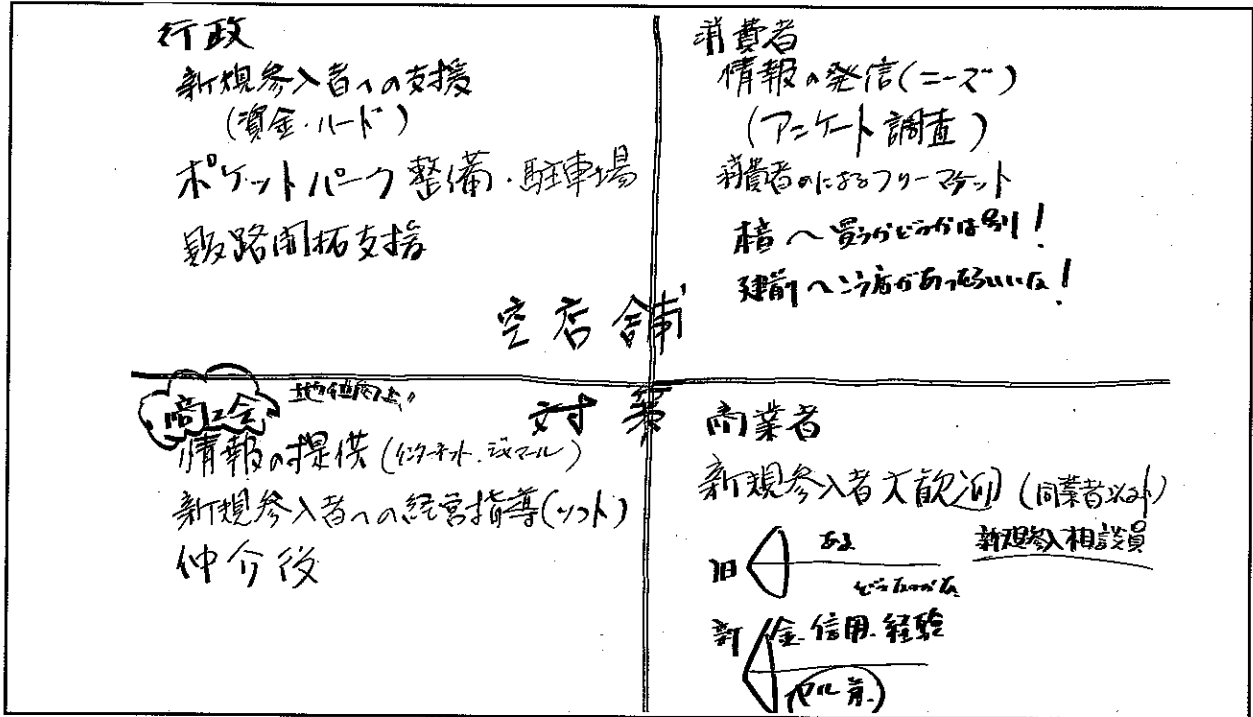 行政
新規参入者への支援
(資金・ハード)
ポケットパーク整備・駐車場
販路開拓支援
消費者
情報の発信(ニーズ)
(アンケート調査)
消費者のによるフリーマケット
本音へ買うかどうかは別!
建前へこう店があったらいいな!
空店舗
対策
商工会
情報の提供(インターネット、
新規参入者への経営指導(ソフト)
仲介後
商業者
新規参入者大歓迎(同業者以外)
新規参入相談員
旧
どうなのかな
新 金・信用・経験
ヤル気